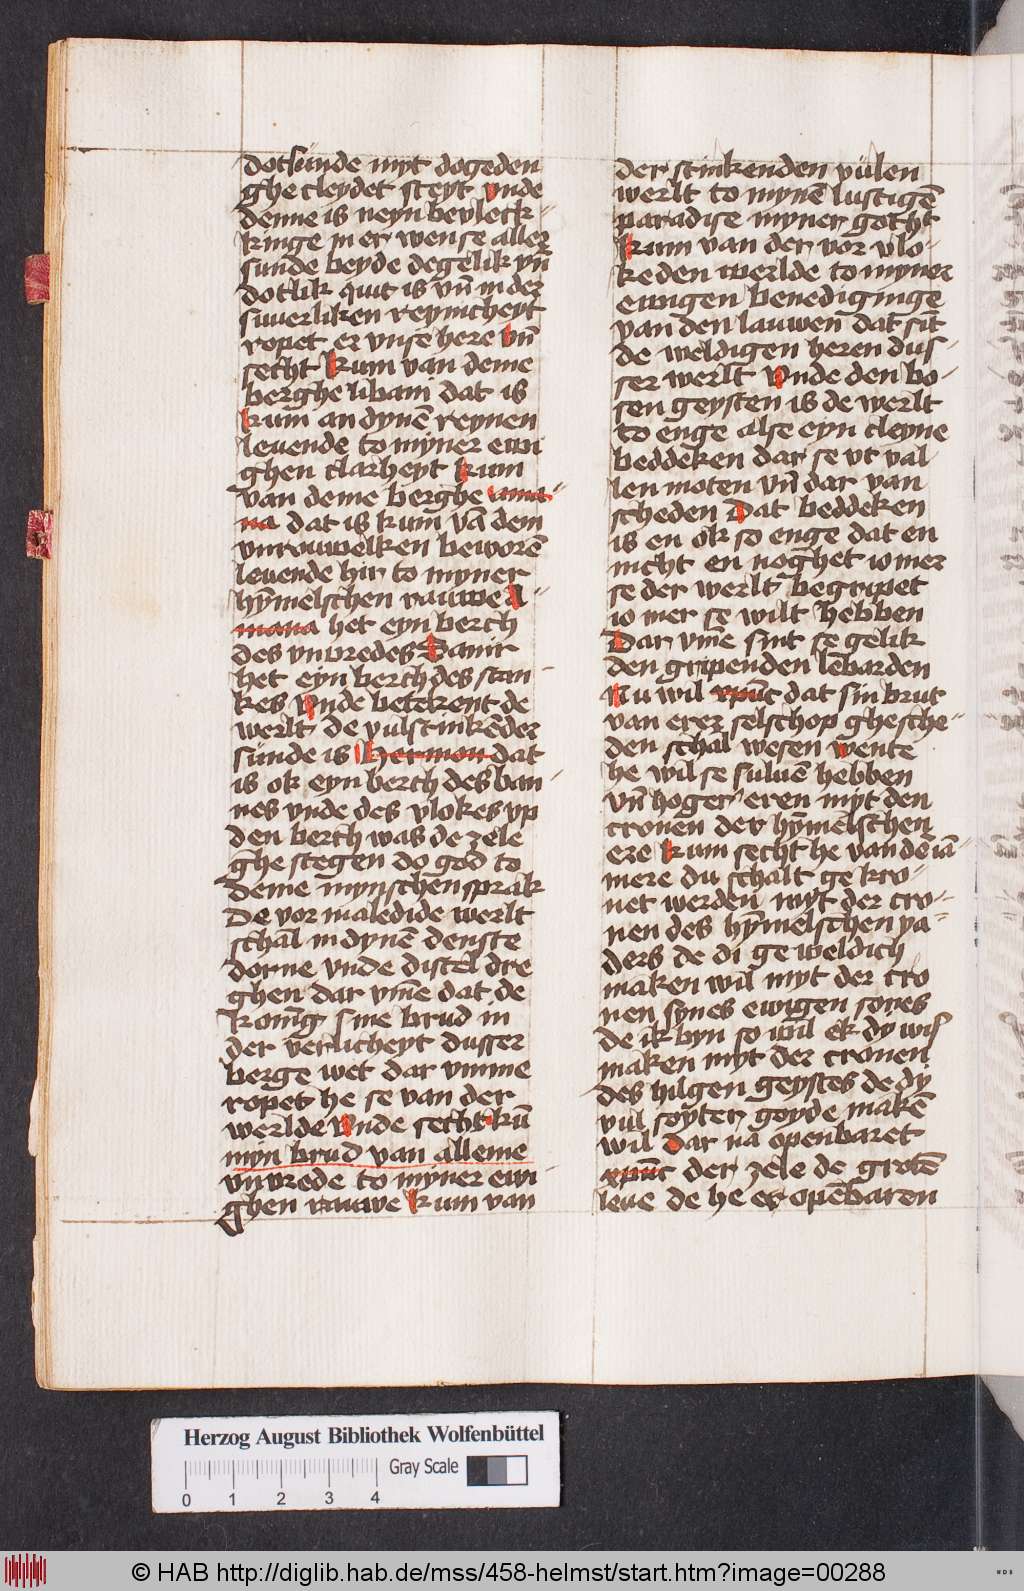 dotsunde myt dogeden
ghe cleydet steyt vnde
denne is neyn bevleck-
kinge in er wen se aller
sunde beyde degelik vn̄
dotlik quit is vn̄ in der
suuerliken reynicheyt
ropet er vnse here vn̄
secht kum van deme
berghe libani dat is
kum an dynē reynen
leuende to myner ewi
ghen clarheyt kum
van deme berghe ama-
na dat is kum vā dem
vnrouwelken beworē
leuende hir to myner
hȳmelschen rauwe A-
mana het eyn berch
des vnvredes Sanir
het eyn berch des stan-
kes vnde betekent de
werlt de vulstinkēder
sunde is hermon dat
is ok eyn berch des ban-
nes vnde des vlokes vp
den berch was de zele
ghe stegen do god to
deme mynschen sprak
De vor maledide werlt
schal in dynē denste
dorne vnde distel dre
ghen dar vm̄e dat de
konīg sine brud in
der verlicheyt dusser
berge wet dar vmme
ropet he se van der
werlde vnde secht kū
myn brud van alleme
vnvrede to myner ewi
ghen rauwe kum van
der stinkenden vulen
werlt to mynē lustigē
paradise myner gotht
kum van der vor vlo-
keden werlde to myner
ewigen benediginge
van den lauwen dat sīt
de weldigen heren dus-
ser werlt vnde den bo-
sen geysten is de werlt
to enge alse eyn cleyne
beddeken dar se vt val-
len moten vn̄ dar van
scheden Dat beddeken
is en ok so enge dat en
nicht en noghet io mer
se der werlt begripet
io mer se wilt hebben
Dar vm̄e sint se gelik
den gripenden lēbarden
Nu wil xpūc dat sin brut
van erer selschop ghesche-
den schal wesen wente
he wil se suluē hebben
vn̄ hoger eren myt den
cronen der hȳmelschen
ere kum secht he van dē iā-
mere du schalt ge kro-
net werden myt der cro-
nen des hȳmelschen va-
ders de di ge weldich
maken wil myt der cro
nen synes ewigen sones
de ik byn so wil ek dy wis
maken myt der cronen
des hilgen geystes de dy
vul soyter goyde makē
wil Dar na openbaret
xpūc der zele de grotē
leue de he er opēbaren
Herzog August Bibliothek Wolfenbüttel
Gray Scale
0 1 2 3 4
© HAB http://diglib.hab.de/mss/458-helmst/start.htm?image=00288